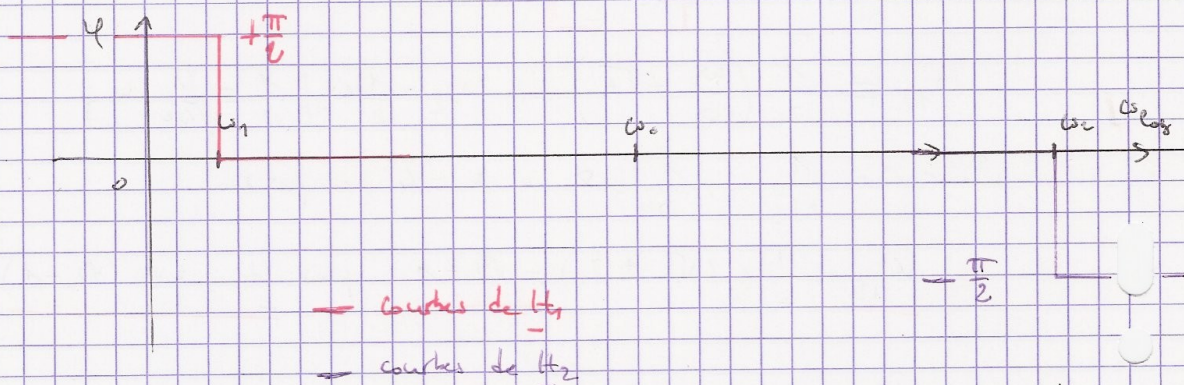 φ
+π/2
ω1
ω0
ω2
ωlog
0
- π/2
— courbes de H1
— courbes de H2